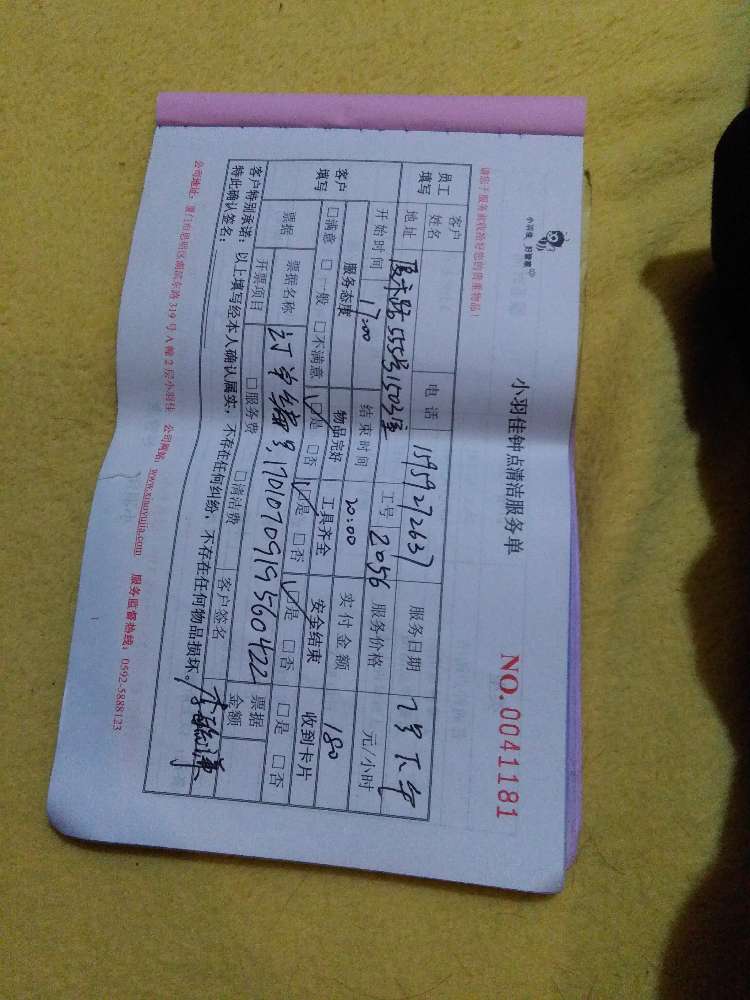 小羽佳 好管家
小羽佳钟点清洁服务单
NO.0041181
请您于服务前收拾好您的贵重物品!
员工填写 客户姓名 电话 15959272637 服务日期 7号下午
地址 555号1503室 工号 2056 服务价格 元/小时
开始时间 17:00 结束时间 20:00 实付金额 180
客户填写 服务态度 物品完好 工具齐全 安全结束 收到卡片
□满意 □一般 □不满意 □是 □否 □是 □否 □是 □否 □是 □否
票据 票据名称 订单编号,1701070919560422 票据金额
开票项目 □服务费 □清洁费 客户签名
客户特别承诺:以上填写经本人确认属实,不存在任何纠纷,不存在任何物品损坏。
特此确认签名:
公司地址:厦门市思明区湖滨东路319号A幢2层小羽佳 公司网站:www.xiaoyujia.com 服务监督热线:0592-5888123